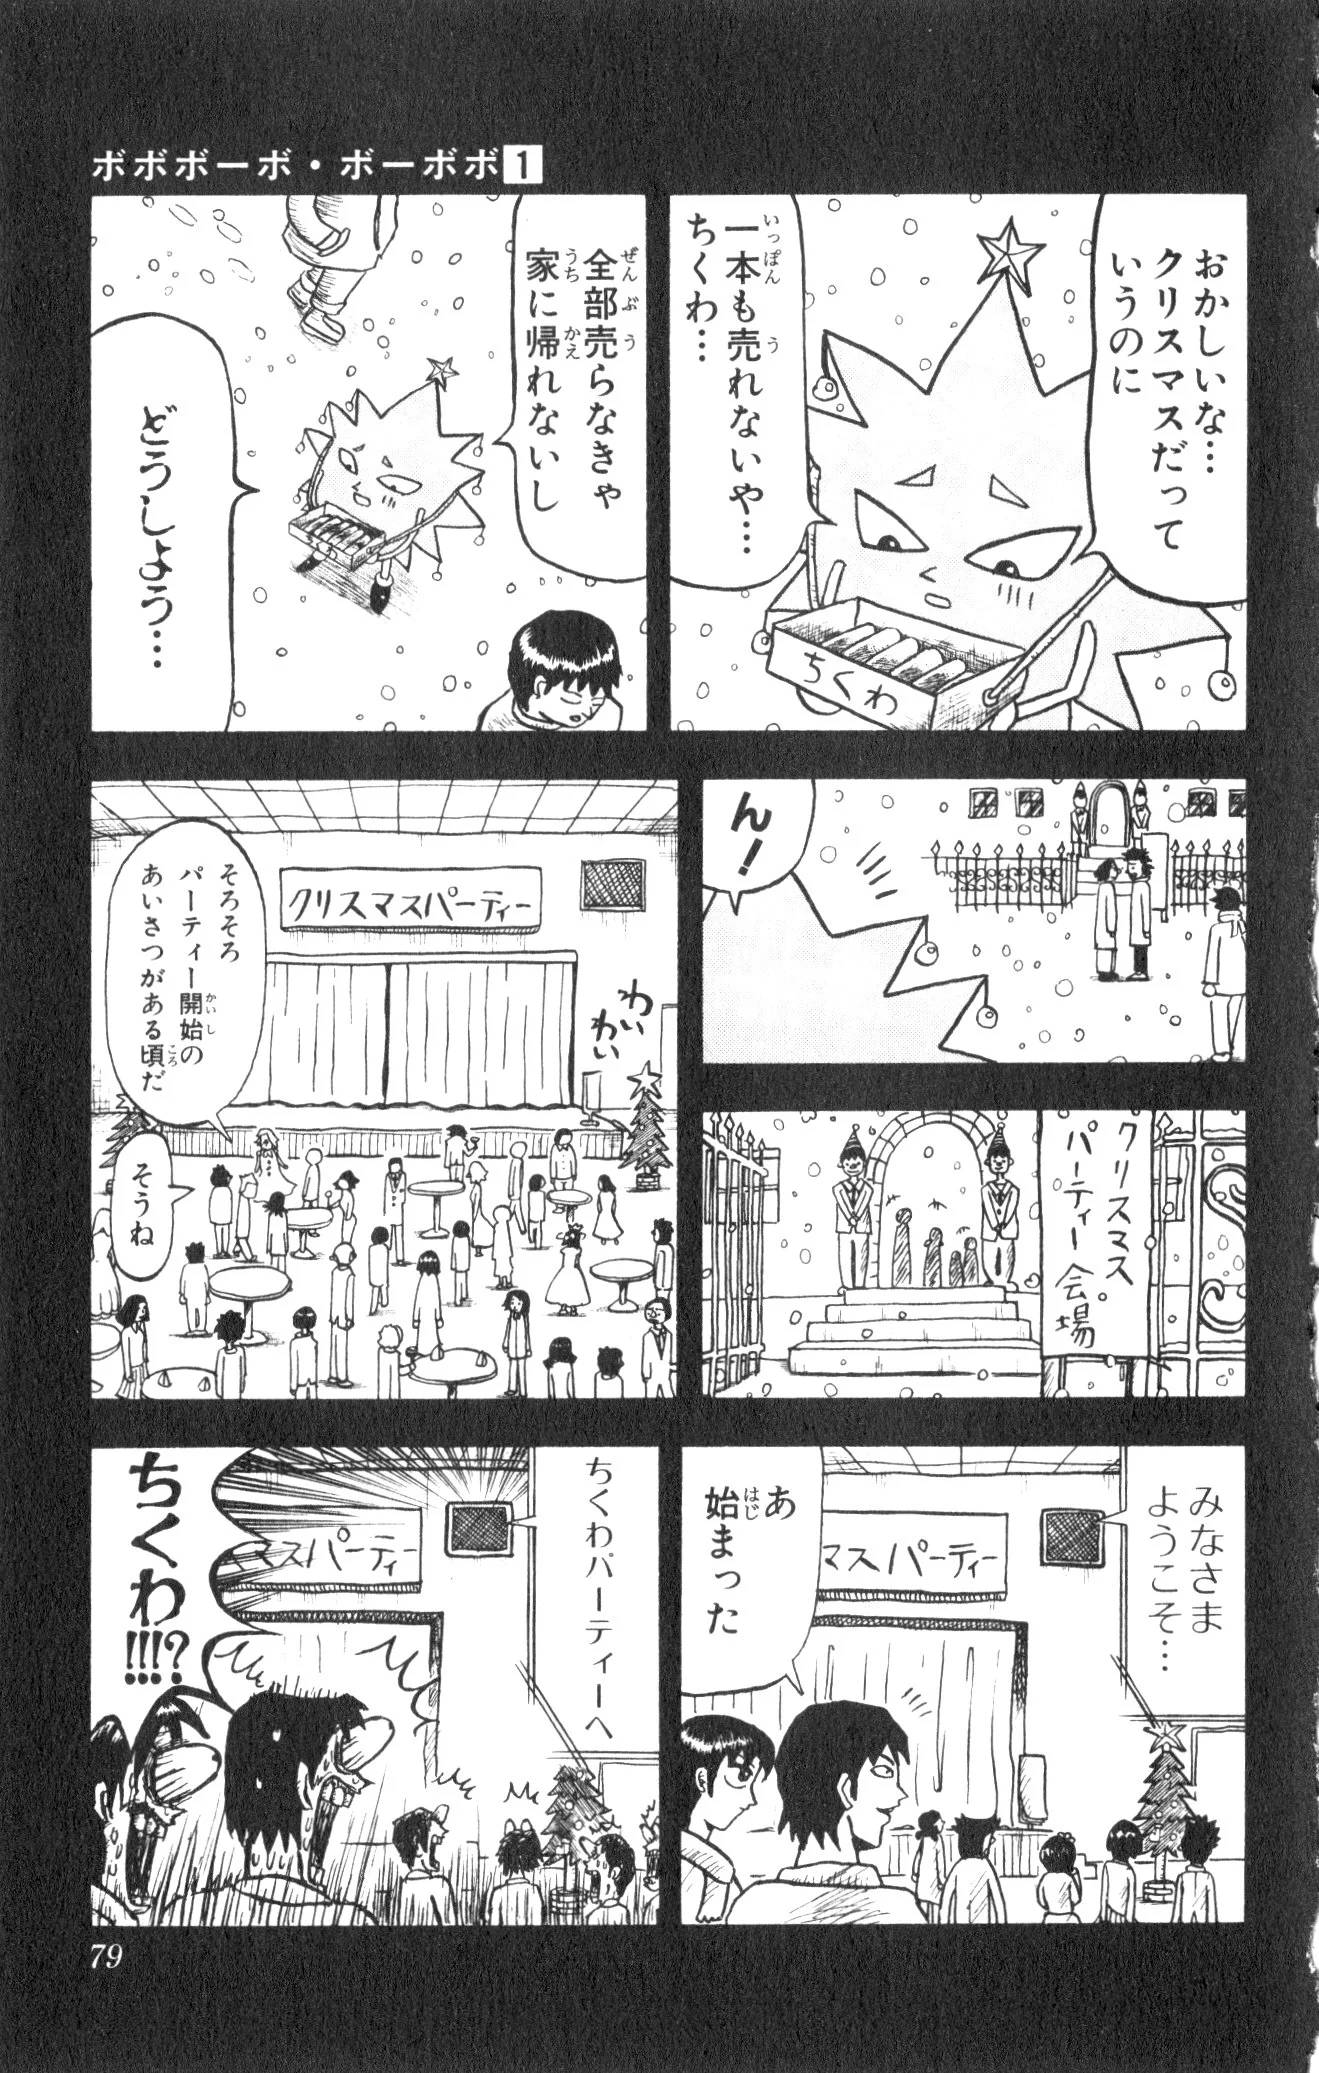 ボボボーボ・ボーボボ1
おかしいな…
クリスマスだって
いうのに
一本も売れないや…
いっぽん
う
ちくわ…
ちくわ
全部売らなきゃ
ぜんぶう
家に帰れないし
うちかえ
どうしよう…
ん!
クリスマス
パーティー会場
クリスマスパーティー
わい
わい
そろそろ
パーティー開始の
かいし
あいさつがある頃だ
ころ
そうね
みなさま
ようこそ…
マスパーティー
あ
始まった
はじ
ちくわパーティーへ
マスパーティー
ちくわ!!!?
79